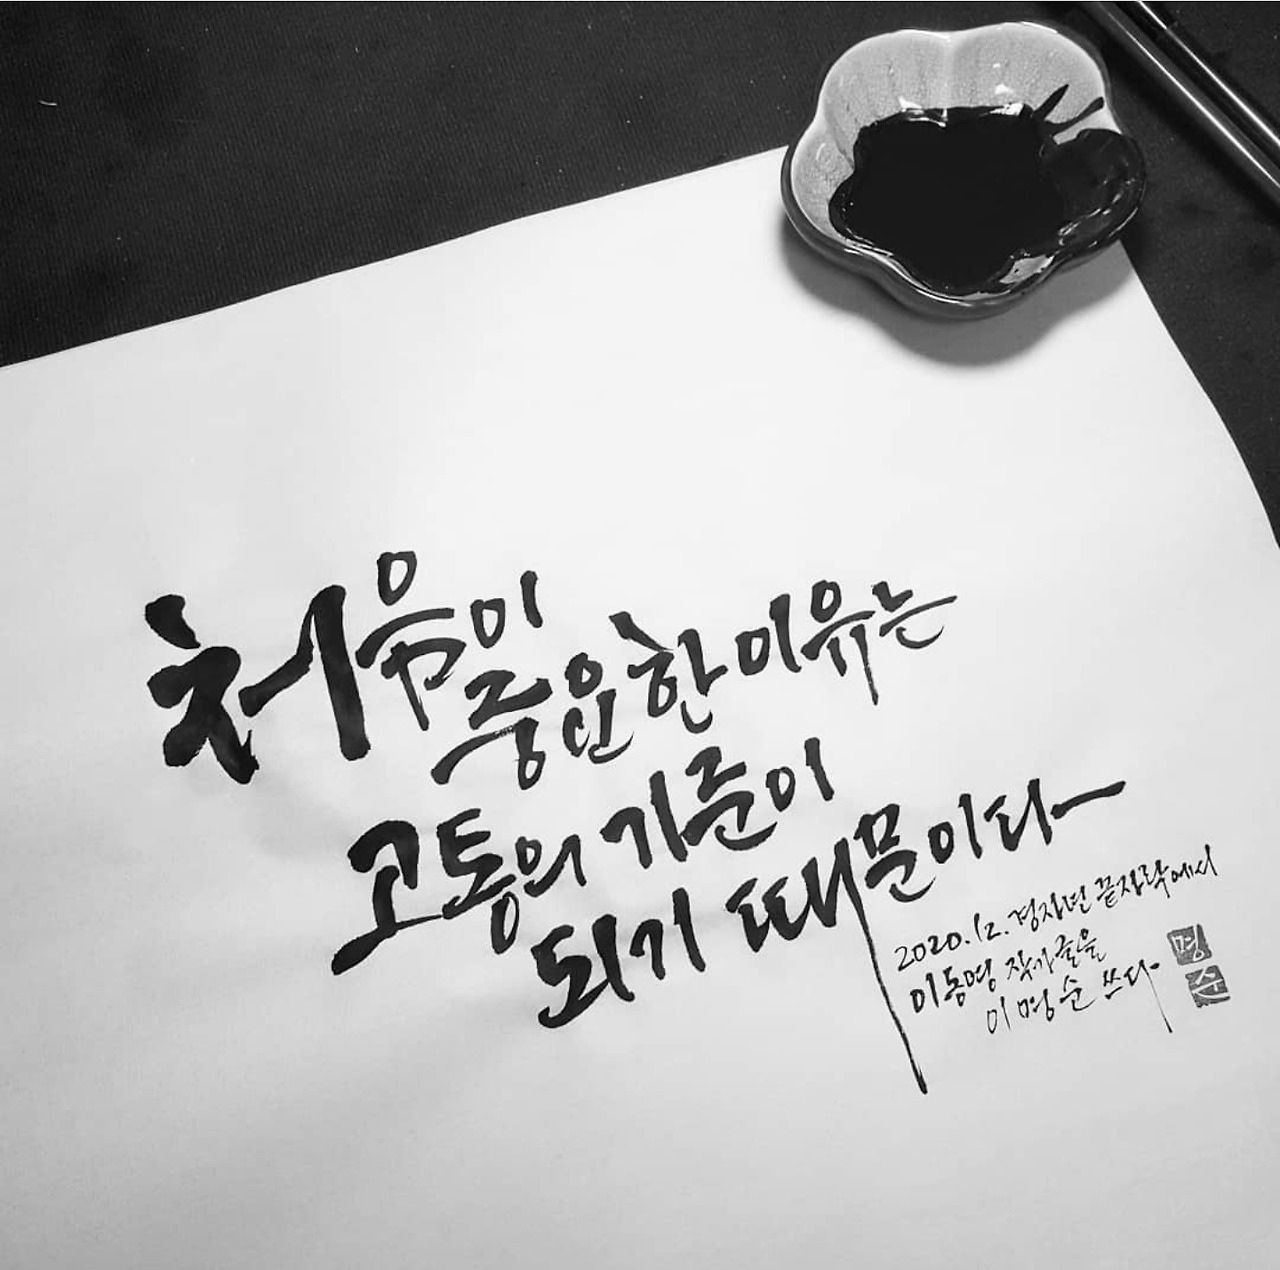 처음이
중요한 이유는
고통의 기준이
되기 때문이다
2020. 12. 경자년 끝자락에서
이동영 작가글을
이명순 쓰다
명
순